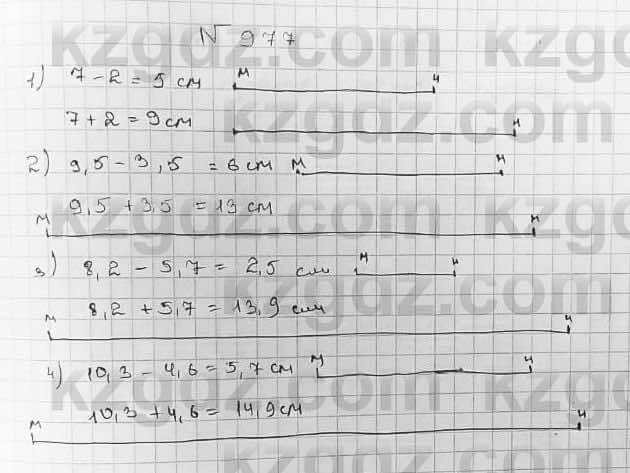 № 977
1) 7 - 2 = 5 см M H
7 + 2 = 9 см H
2) 9,5 - 3,5 = 6 см M H
9,5 + 3,5 = 13 см
M H
3) 8,2 - 5,7 = 2,5 см M H
8,2 + 5,7 = 13,9 см
M H
4) 10,3 - 4,6 = 5,7 см M H
10,3 + 4,6 = 14,9 см
M H
kzgdz.com